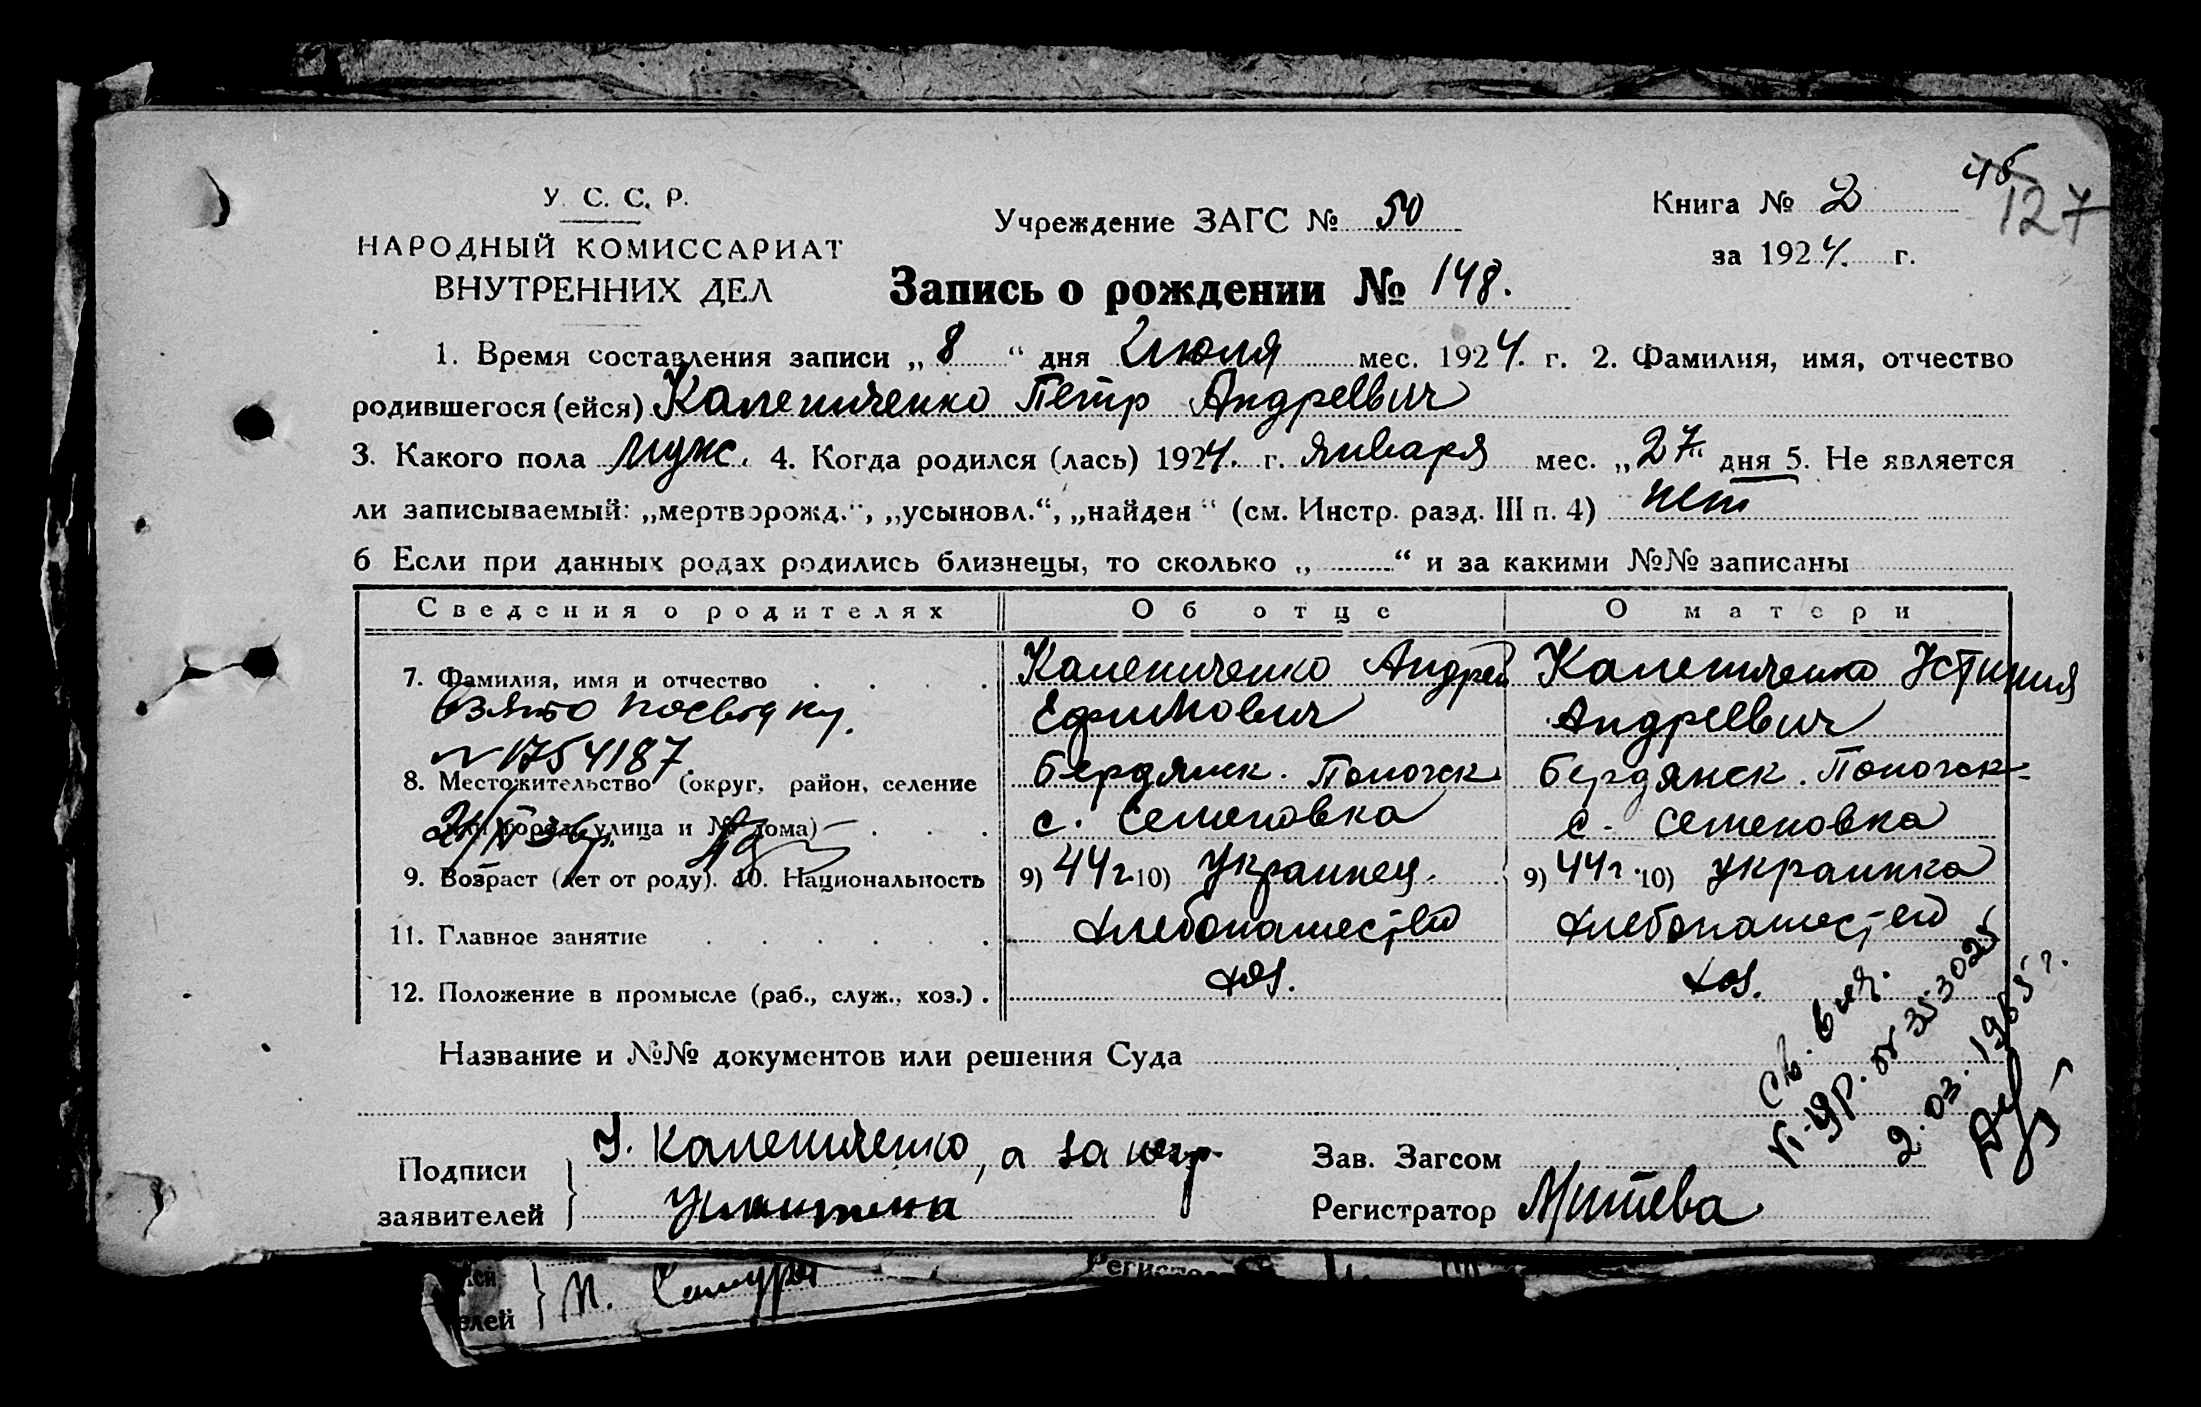 46
127
У. С. С. Р.
НАРОДНЫЙ КОМИССАРИАТ
ВНУТРЕННИХ ДЕЛ
Учреждение ЗАГС № 50
Книга № 2
за 1924. г.
Запись о рождении № 148.
1. Время составления записи „ 8 “ дня Июля мес. 1924. г. 2. Фамилия, имя, отчество
родившегося (ейся) Калениченко Петр Андреевич
3. Какого пола муж. 4. Когда родился (лась) 1924. г. января мес. „ 27 “ дня 5. Не является
ли записываемый: „мертворожд.“, „усыновл.“, „найден“ (см. Инстр. разд. III п. 4) нет
6 Если при данных родах родились близнецы, то сколько „ “ и за какими №№ записаны
Сведения о родителях Об отце О матери
7. Фамилия, имя и отчество Калениченко Андрей Калениченко Устиния
взято посвідку. Ефимович Андреевич
№ 1754187.
8. Местожительство (округ, район, селение Бердянск. Пологск. Бердянск. Пологск.
улица и № дома) с. Семеновка с. Семеновка
9. Возраст (лет от роду). 10. Национальность 9) 44 г. 10) Украинец. 9) 44 г. 10) украинка
11. Главное занятие хлебопашество хлебопашество
12. Положение в промысле (раб., служ., хоз.) . хоз. хоз.
Название и №№ документов или решения Суда
св. выд.
№ 353025
2. 03. 1965 г.
Подписи
заявителей
У. Калениченко, а за негр
Зав. Загсом
Регистратор Митева
елей